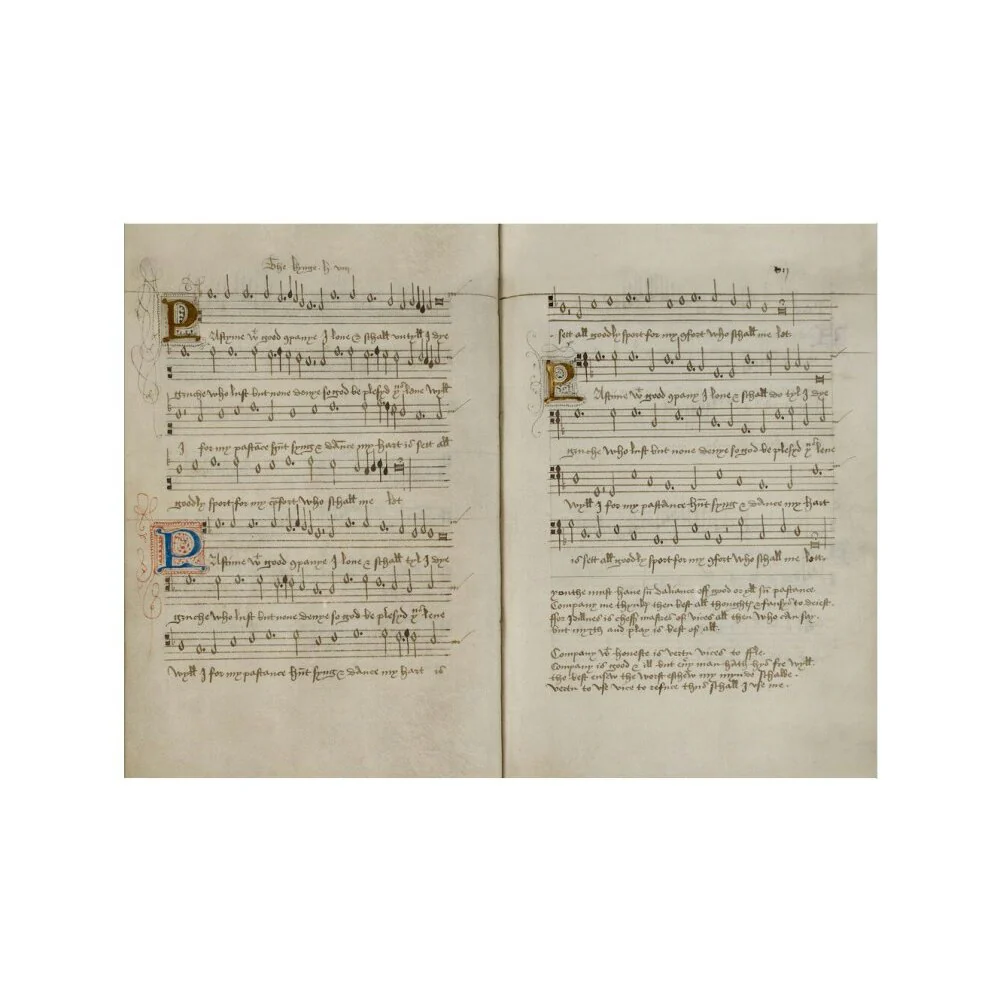 The kynge . h . viij
PAstyme wt good companye I love & schall vntyll I dye
gruche who lust but none denye so god be plesyd þus leve wyll
I for my pastance hunt syng & dance my hart is sett all
goodly sport for my comfort who schall me let
PAstyme wt good companye I love & schall tyl I dye
gruche who lust but none denye so god be plesyd þus leve
wyll I for my pastance hunt syng & dance my hart is
sett all goodly sport for my comfort who schall me let.
PAstyme wt good company I love & schall do tyl I dye
gruche who lust but none denye so god be plesyd þus leve
wyll I for my pastance hunt syng & dance my hart
is sett all goodly sport for my comfort who schall me lett.
youthe must have sum daliance off good or yll sum pastance.
Company me thynks then best all thoughts & fansys to deiest.
ffor Idillnes is cheff mastres of vices all then who can say.
but myrth and play is best of all.
Company wt honeste is vertu vices to ffle.
Company is good & ill but every man hath hys fre wyll.
the best ensew the worst eschew my mynde schalbe.
vertu to vse vice to refuce thus schall I vse me.